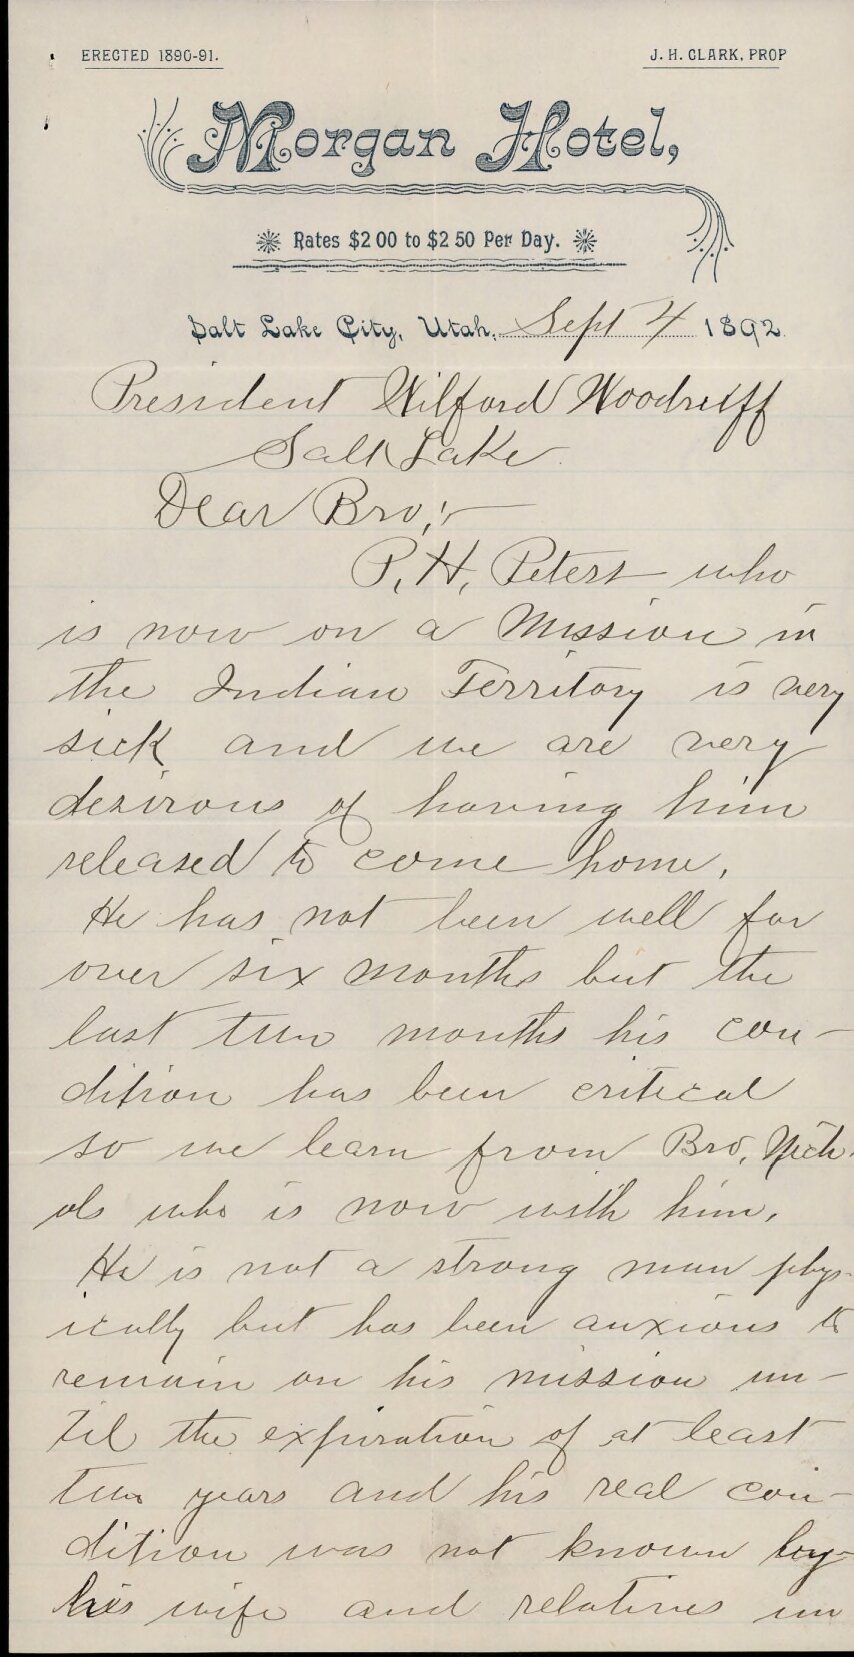 ERECTED 1890-91.
J. H. CLARK, PROP
Morgan Hotel,
Rates $2 00 to $2 50 Per Day.
Salt Lake City, Utah, Sept 4 1892
President Wilford Woodruff
Salt Lake
Dear Bro;
P. H. Peters who
is now on a Mission in
the Indian Territory is very
sick and we are very
desirous of having him
released to come home.
He has not been well for
over six months but the
last two months his con-
dition has been critical
so we learn from Bro. Nich-
ols who is now with him.
He is not a strong man phys-
ically but has been anxious to
remain on his mission un-
til the expiration of at least
two years and his real con-
dition was not known by
his wife and relatives un